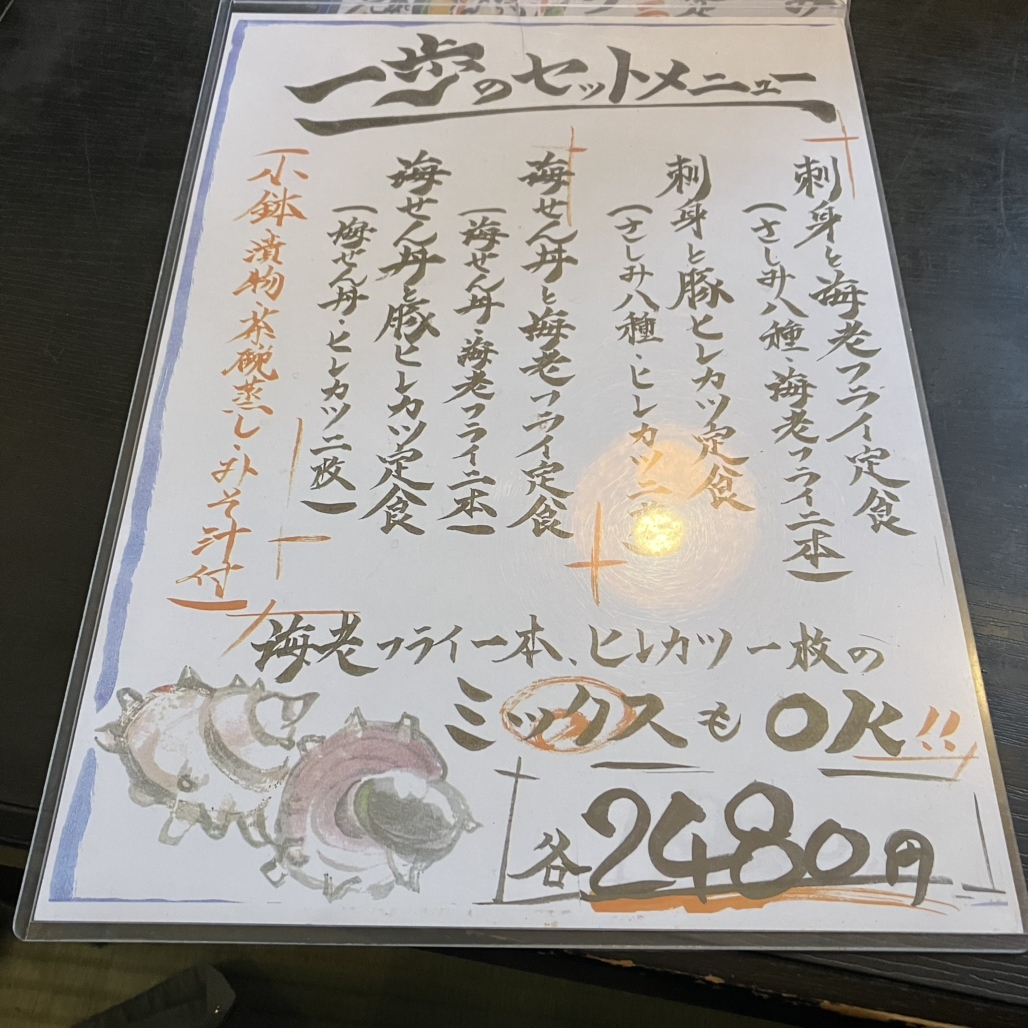 一歩のセットメニュー
刺身と海老フライ定食
(さしみ八種・海老フライ二本)
刺身と豚ヒレカツ定食
(さしみ八種・ヒレカツ二
海せん丼と海老フライ定食
(海せん丼・海老フライ二本)
海せん丼と豚ヒレカツ定食
(海せん丼・ヒレカツ二枚)
(小鉢・漬物・茶碗蒸し・みそ汁付)
海老フライ一本、ヒレカツ一枚の
ミックスもOK!!
各2480円